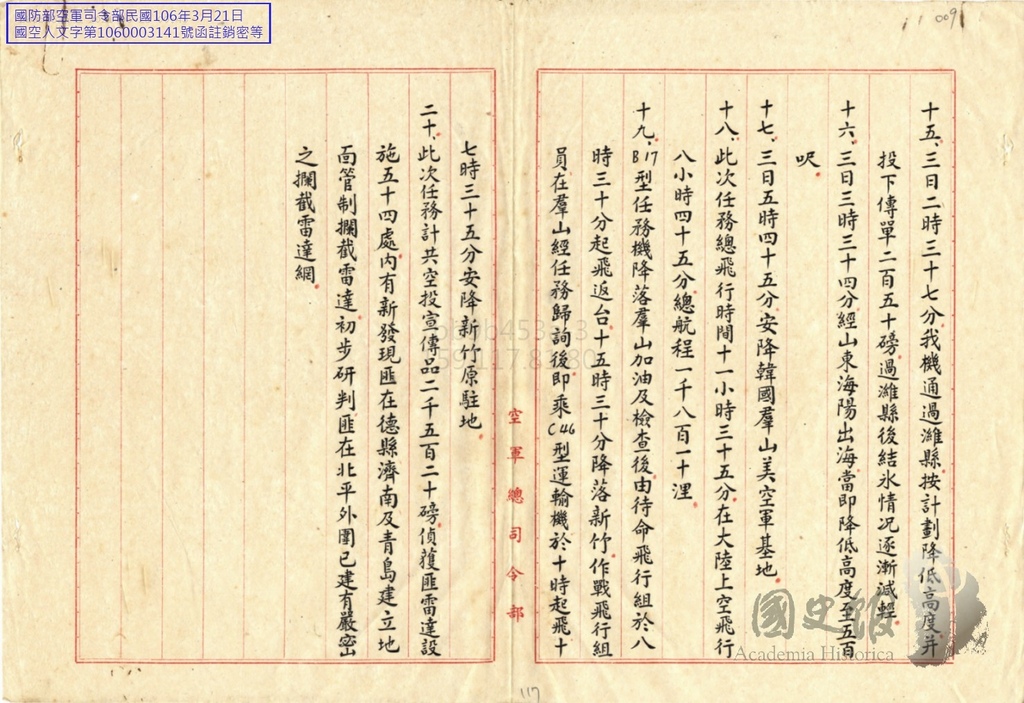 國防部空軍司令部民國106年3月21日
國空人文字第1060003141號函註銷密等
009
十五、三日二時三十七分我機通過濰縣按計劃降低高度并
投下傳單二百五十磅過濰縣後結氷情况逐漸減輕
十六、三日三時三十四分經山東海陽出海當即降低高度至五百
呎
十七、三日五時四十五分安降韓國羣山美空軍基地
十八、此次任務總飛行時間十一小時三十五分在大陸上空飛行
八小時四十五分總航程一千八百一十浬
十九、B17型任務機降落羣山加油及檢查後由待命飛行組於八
時三十分起飛返台十五時三十分降落新竹作戰飛行組
員在羣山經任務歸詢後即乘C46型運輸機於十時起飛十
空軍總司令部
七時三十五分安降新竹原駐地
二十、此次任務計共空投宣傳品二千五百二十磅偵獲匪雷達設
施五十四處內有新發現匪在德縣濟南及青島建立地
面管制攔截雷達初步研判匪在北平外圍已建有嚴密
之攔截雷達網
117
國史館
Academia Historica